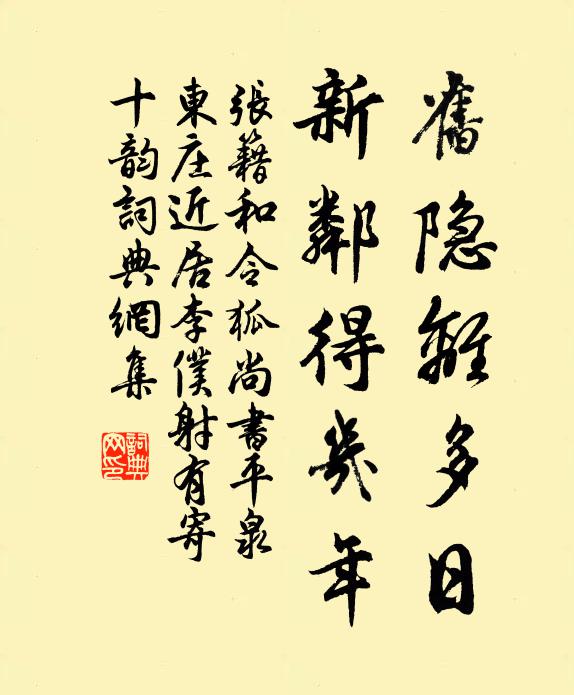 舊隐離多日
新鄰得幾年
張籍和令狐尚書平泉
東庄近居李僕射有寄
十韵詞典網集
詞典网印